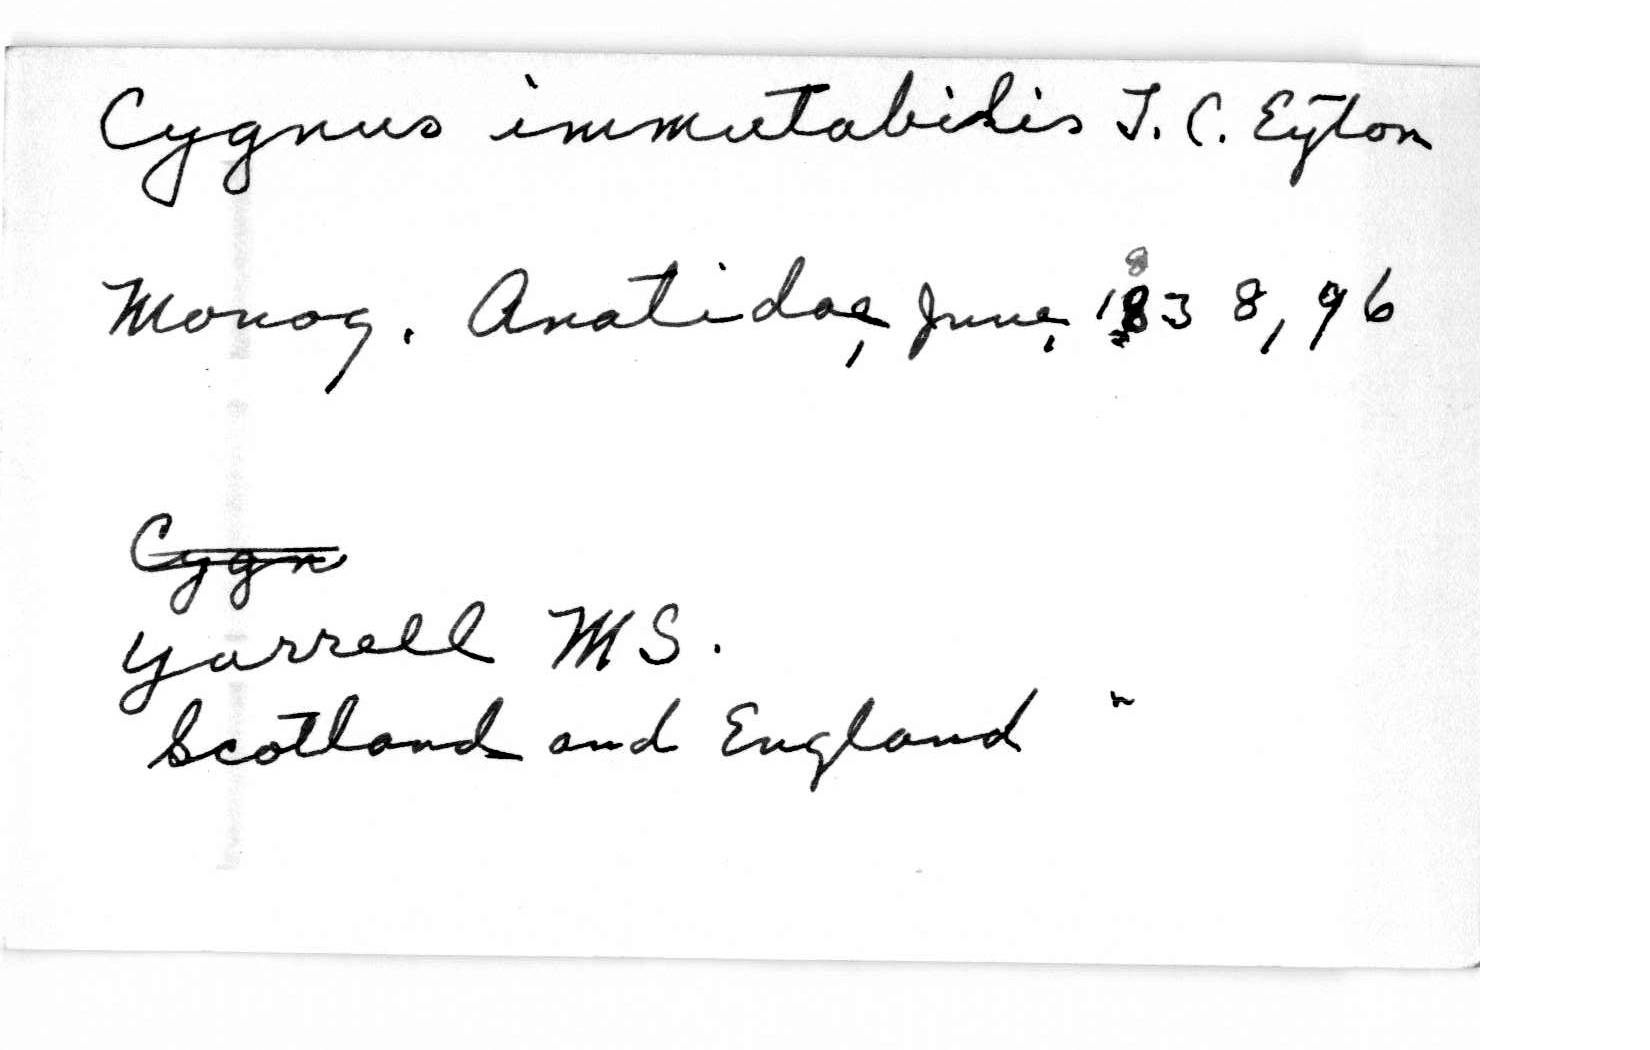 Cygnus immutabilis T. C. Eyton
Monog. Anatidae, June, 1838, 96
Cygn
Yarrell MS.
Scotland and England "